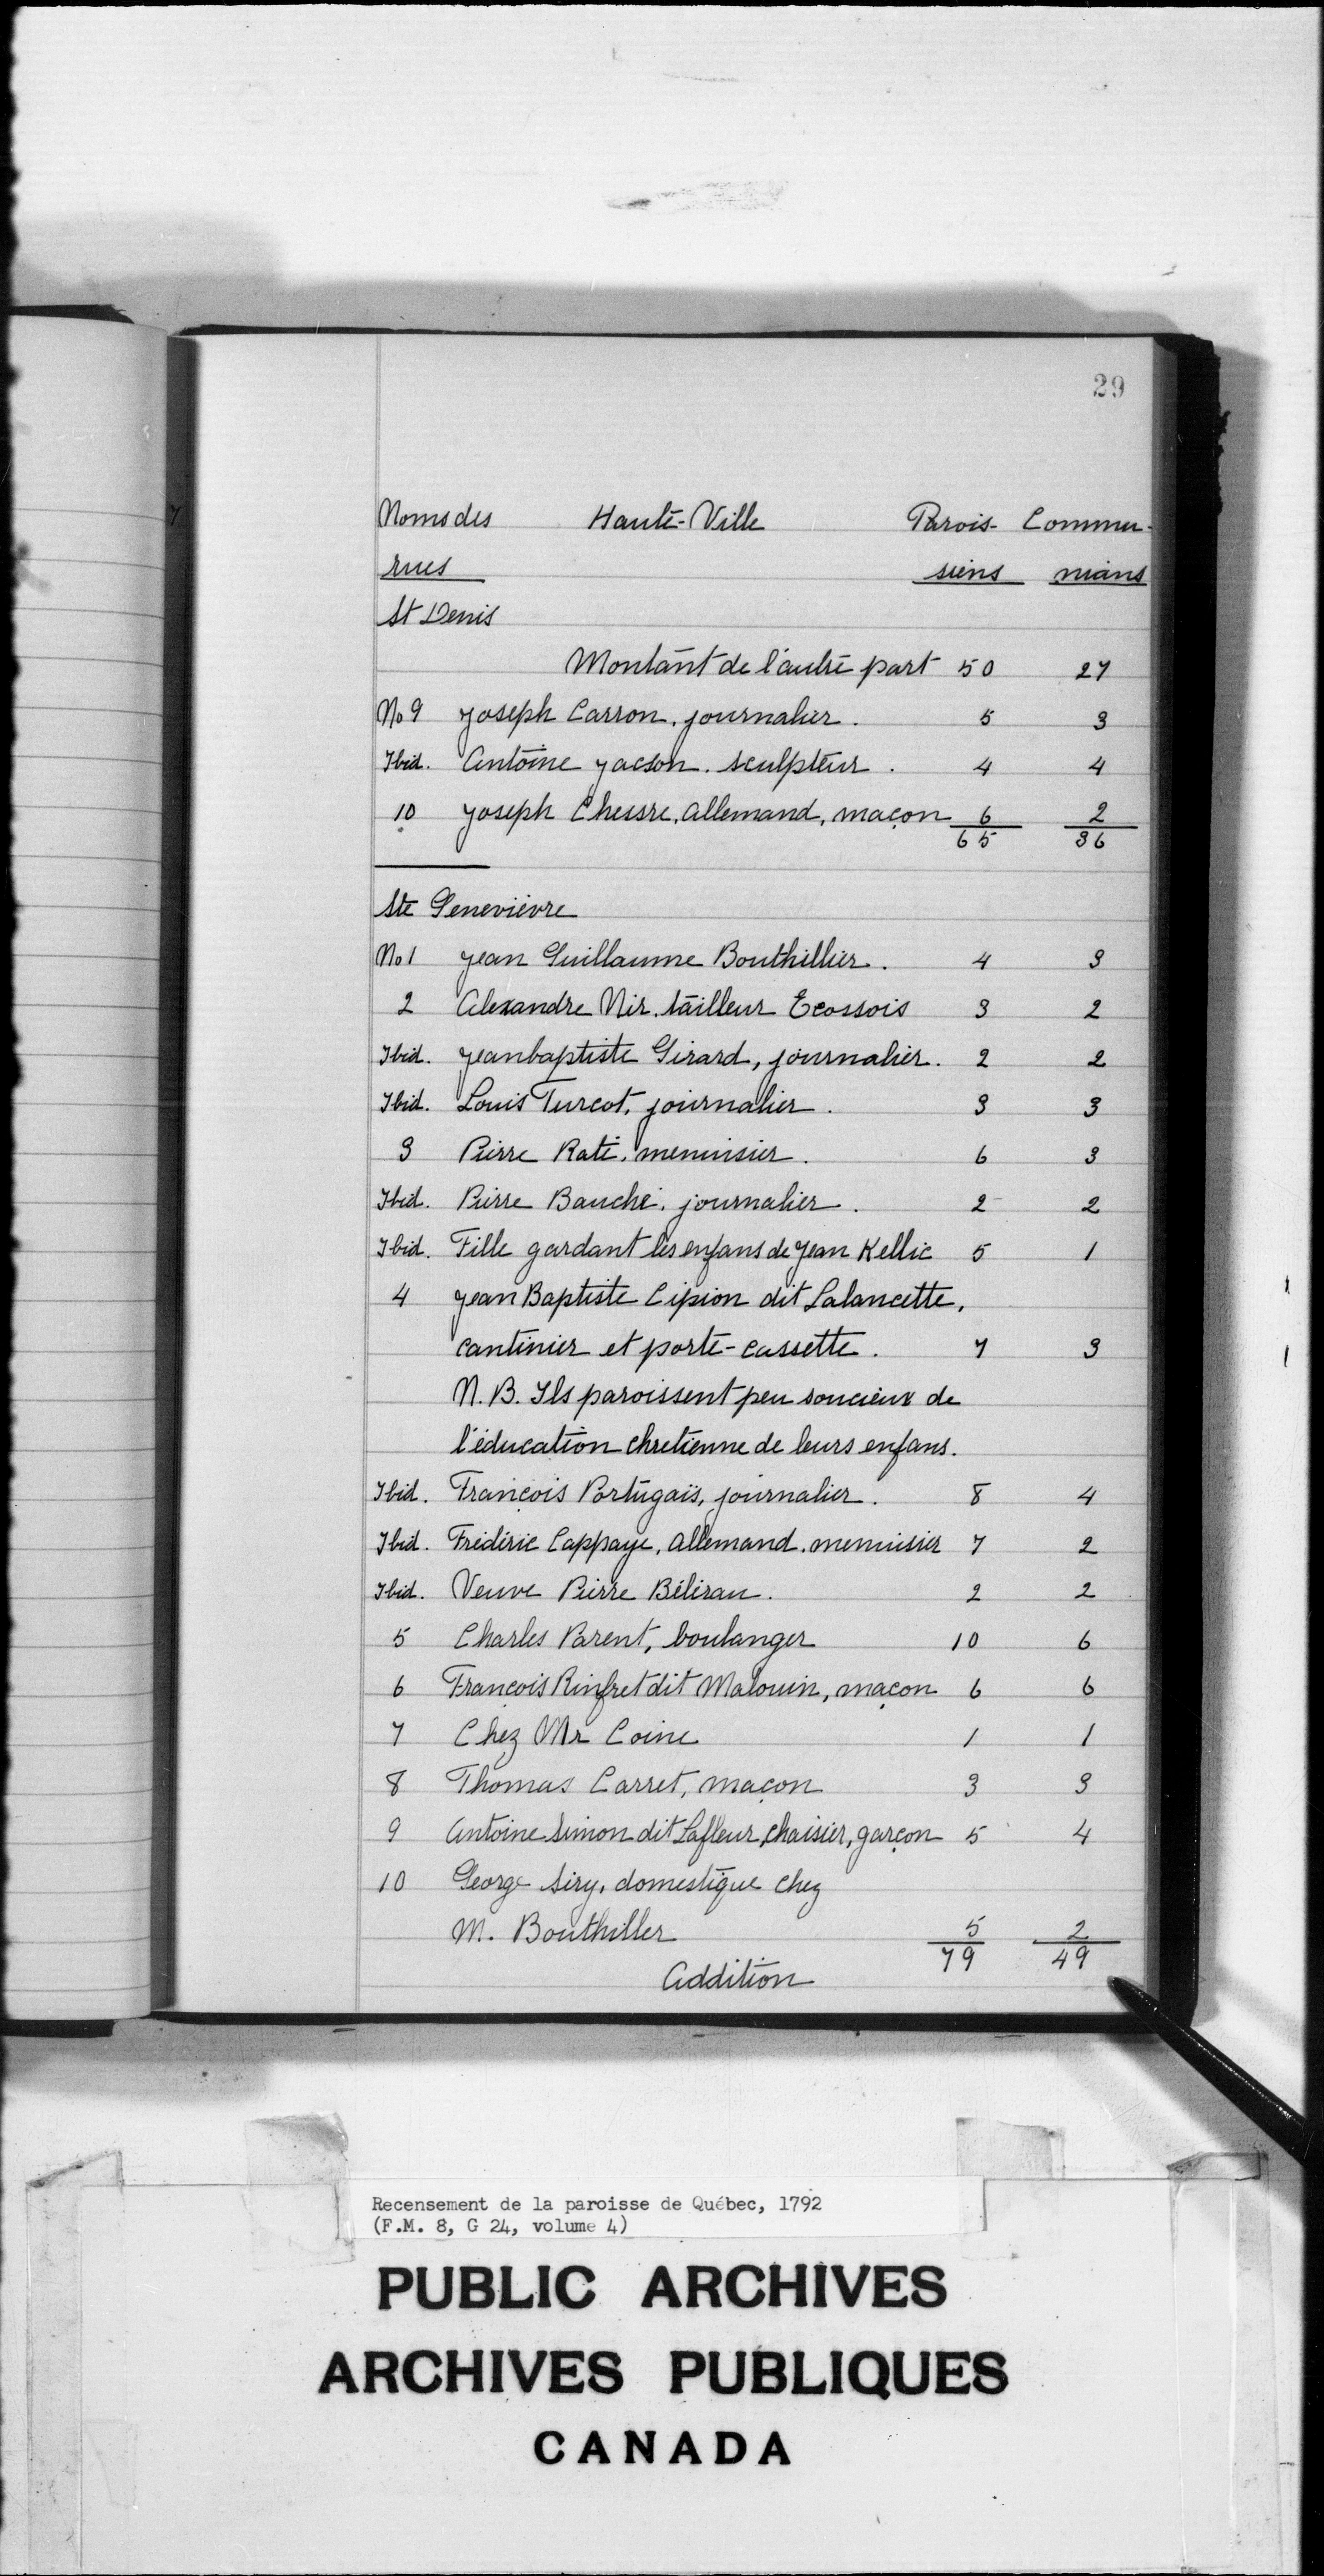 29
Noms des Haute-Ville Parois- Commu-
rues siens nians
St Denis
Montant de l'autre part 50 27
No 9 Joseph Carron, journalier. 5 3
Ibid. Antoine Jacson, sculpteur. 4 4
10 Joseph Chessre, allemand, maçon 6 2
65 36
Ste Genevièvre
No 1 Jean Guillaume Bouthillier. 4 3
2 Alexandre Nir, tailleur Ecossois 3 2
Ibid. Jeanbaptiste Girard, journalier. 2 2
Ibid. Louis Turcot, journalier. 3 3
3 Pierre Raté, menuisier. 6 3
Ibid. Pierre Bauché, journalier. 2 2
Ibid. Fille gardant les enfans de Jean Kellie 5 1
4 Jean Baptiste Cipion dit Lalancette,
cantinier et porte-cassette. 7 3
N.B. Ils paroissent peu soucieux de
l'éducation chretienne de leurs enfans.
Ibid. François Portugais, journalier. 8 4
Ibid. Fréderic Cappaye, allemand, menuisier 7 2
Ibid. Veuve Pierre Béliran. 2 2
5 Charles Parent, boulanger 10 6
6 François Rinfret dit Malouin, maçon 6 6
7 Chez Mr Coine 1 1
8 Thomas Carret, maçon 3 3
9 Antoine Simon dit Lafleur, chaisier, garçon 5 4
10 George Siry, domestique chez
M. Bouthiller 5 2
79 49
Addition
Recensement de la paroisse de Québec, 1792
(F.M. 8, G 24, volume 4)
PUBLIC ARCHIVES
ARCHIVES PUBLIQUES
CANADA